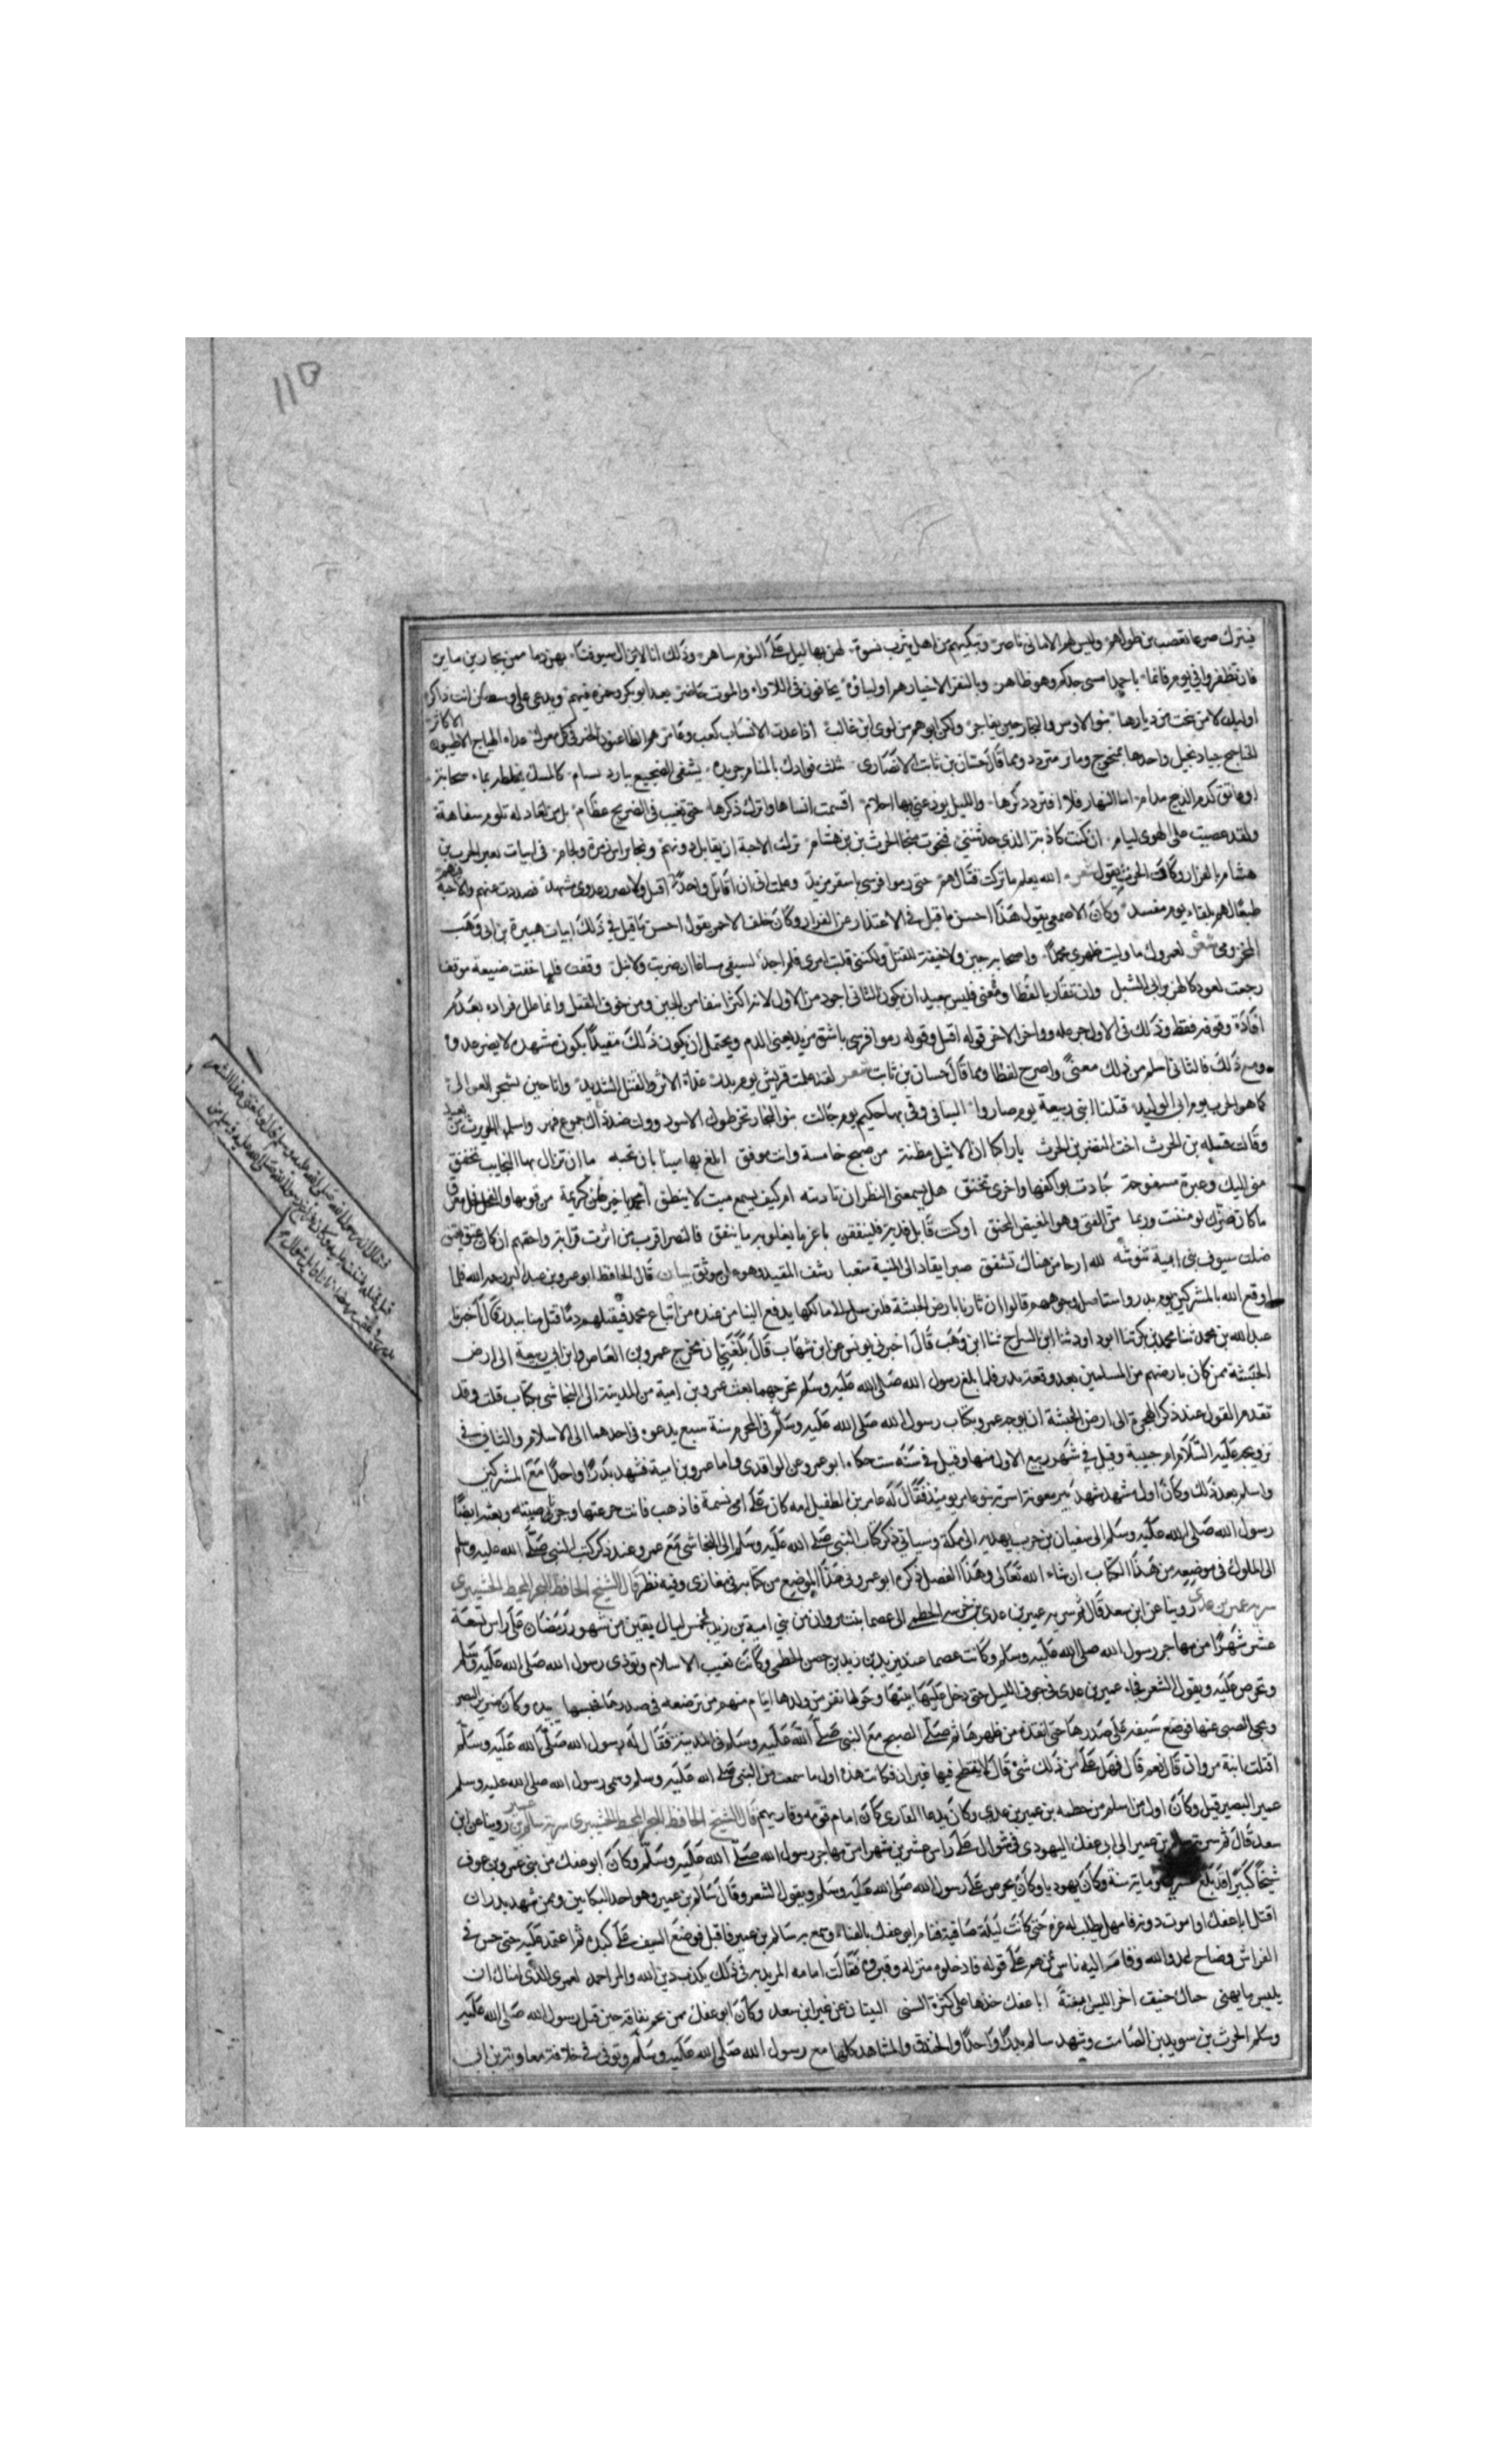 ١١٥
فيترك صرعا تعصب بن حولهم وليس لهم الا امانى ناصر وتبكيهم من اهل يثرب نسوة لهن بها ليل على النوم ساهر وذلك انا لا يزال سيوفنا بهن دما ممن يحاربن ماير
فان تظفروا في يوم فانما باحمد امسى جدكم وهو ظاهر وبالنفر الاخيار هم اوليآؤه يحامون فى اللاواء والموت حاضر يعد ابو بكر وحمزة فيهم ويدعى على وسط من انت ذاكر
اوليك لا من نتجت من ديارها بنو الاوس والنجار حين يفاخر ولكن ابوهم من لوى ابن غالب اذا عدت الانساب كعب وعامر هم الطاعنون الخيل فى كل معرك غداة الهياج الاطيبون الاكاثر
جياد نخيل ومما قال حسان بن ثابت الانصارى تبلت فوادك بالمنام خريدة يشفى الضجيع ببارد بسام كالمسك تخلطه بماء سحابة
او عاتق كدم الذبيح مدام اما النهار فلا افتر ذكرها والليل يوزعني بها احلام اقسمت انساها واترك ذكرها حتى تغيب فى الضريح عظام بل من لعاذلة تلوم سفاهة
ولقد عصيت على الهوى لوام ان كنت كاذبة الذى حدثتنى فنجوت منجا الحرث بن هشام ترك الاحبة ان يقاتل دونهم ونجا براس طمرة ولجام فى ابيات يعير الحرث بن
هشام بالفرار وكان الحرث يقول شعر الله يعلم ما تركت قتالهم حتى رموا فرسى باشقر مزبد وعلمت انى ان اقاتل واحدا اقتل ولا يضرر عدوى مشهد فصددت عنهم والاحبة فيهم
طمعا لهم بلقاء يوم مفسد وكان الاصمعى يقول هذا احسن ما قيل فى الاعتذار عن الفرار وكان خلف الاحمر يقول احسن ما قيل في ذلك ابيات هبيرة بن ابى وهب
المخزومى شعر لعمرك ما وليت ظهرى محمدا واصحابه جبن ولا خيفة القتل ولكننى قلبت امرى فلم اجد لسيفى مساغا ان ضربت ولا نبل وقفت فلما خفت ضيعة موقفى
رجعت لعود كالهزبر ابى الشبل وان تقاربا لفظا ومعنى فليس ببعيد ان يكون الثانى اجود من الاول لانه اكثر انتفا من الجبن ومن خوف القتل وانما علل فراره بعدم
افادة وقوفه فقط وذلك فى الاول جزء علة وواخر الاخر قوله اقتل وقوله رموا فرسى باشقر مزبد يعنى الدم ويحتمل ان يكون ذلك مقيدا بكون مشهده لا يضر عدوه
ومع ذلك فالثانى اسلم من ذلك معنى واصرح لفظا ومما قال حسان بن ثابت شعر لقد علمت قريش يوم بدر غداة الاسر والقتل الشديد وانا حين تشتجر العوالى
حماة الحرب يوم ابى الوليد قتلنا ابنى ربيعة يوم صاروا الينا فى وفر بها حكيم يوم جالت بنو النجار تخطر كالاسود وولت عند ذاك جموع فهر واسلمها الحويرث من بعيد
وقالت قتيلة بن الحرث اخت النضر بن الحرث يا راكبا ان الاثيل مظنة من صبح خامسة وانت موفق ابلغ بها ميتا بان تحية ما ان تزال بها النجايب تخفق
منى اليك وعبرة مسفوحة جادت بواكفها واخرى تخنق هل يسمعنى النضر ان ناديته ام كيف يسمع ميت لا ينطق امحمد يا خير ضن كريمة من قومها والفحل فحل معرق
ما كان ضرك لو مننت وربما من الفتى وهو المغيض المحنق او كنت قابل فدية فلينفقن باعز ما يغلو به ما ينفق فالنضر اقرب من اسرت قرابة واحقهم ان كان عتق يعتق
ظلت سيوف بنى ابيه تنوشه لله ارحام هناك تشقق صبرا يقاد الى المنية متعبا رسف المقيد وهو عان موثق بيان قال الحافظ ابو عمرو بن عبد البر رحمه الله فلما
اوقع الله بالمشركين يوم بدر واستاصل وجوههم قالوا ان ثارنا بارض الحبشة فلنرسل الى مالكها يدفع الينا من عنده من اتباع محمد فنقتلهم بمن قتل منا ببدر قال اخبرنا
عبد الله بن محمد ثنا محمد بن بكر ثنا ابو داود ثنا ابن السراج ثنا ابن وهب قال اخبرنى يونس عن ابن شهاب قال بلغنى ان مخرج عمرو بن العاص وابن ابى ربيعة الى ارض
الحبشة ممن كان بارضهم من المسلمين بعد وقعة بدر فلما بلغ رسول الله صلى الله عليه وسلم مخرجهما بعث عمرو بن امية من المدينة الى النجاشى بكتاب قلت وقد
تقدم القول عند ذكر الهجرة الى ارض الحبشة ان توجه عمرو بكتاب رسول الله صلى الله عليه وسلم فى المحرم سنة سبع يدعوه فى احدهما الى الاسلام والثانى فى
تزويجه عليه السلام ام حبيبة وقيل في شهر ربيع الاول منها وقيل فى سنة ست حكاه ابو عمرو عن الواقدى واما عمرو بن امية فشهد بدرا واحدا مع المشركين
واسلم بعد ذلك وكان اول مشهد شهد بير معونة اسرته بنو عامر يوميذ فقال له عامر بن الطفيل انه كان على امى نسمة فاذهب فانت حر عنها وجز ناصيته وبعثه ايضا
رسول الله صلى الله عليه وسلم الى سفيان بن حرب بهدية الى مكة وسياتى ذكر كتاب النبى صلى الله عليه وسلم الى النجاشى مع عمرو عند ذكر كتب النبى صلى الله عليه وسلم
الى الملوك فى موضعه من هذا الكتاب ان شاء الله تعالى وهذا الفصل ذكره ابو عمرو فى هذا الموضع من كتابه فى مغازى وفيه نظر قال الشيخ الحافظ
سرية عمير بن عدى روينا عن ابن سعد قال ثم سرية عمير بن عدى بن خرشة الخطمى الى عصما بنت مروان من بنى امية بن زيد لخمس ليال بقين من شهر رمضان على راس تسعة
عشر شهرا من مهاجر رسول الله صلى الله عليه وسلم وكانت عصما عند يزيد بن زيد بن حصن الخطمى وكانت تعيب الاسلام وتوذى رسول الله صلى الله عليه وسلم
وتحرض عليه وتقول الشعر فجاء عمير بن عدى فى جوف الليل حتى دخل عليها بيتها وحولها نفر من ولدها نيام منهم من ترضعه فى صدرها فجسها بيده وكان ضرير البصر
ونحى الصبى عنها فوضع سيفه على صدرها حتى انفذه من ظهرها ثم صلى الصبح مع النبى صلى الله عليه وسلم فى المدينة فقال له رسول الله صلى الله عليه وسلم
اقتلت ابنة مروان قال نعم قال فهل على من ذلك شئ قال لا ينتطح فيها عنزان فكانت هذه اول ما سمعت من النبى صلى الله عليه وسلم وسمى رسول الله صلى الله عليه وسلم
عمير البصير قيل وكان اول من اسلم من خطمه بن عمير بن عدى وكان يدعا القارى كان امام قومه وقاريهم قال الشيخ الحافظ سرية سالم بن عمير روينا عن ابن
سعد قال ثم سرية سالم بن عمير الى ابى عفك اليهودى فى شوال على راس عشرين شهرا من مهاجر رسول الله صلى الله عليه وسلم وكان ابو عفك من بنى عمرو بن عوف
شيخا كبيرا قد بلغ عشرين ومايتى سنة وكان يهوديا وكان يحرض على رسول الله صلى الله عليه وسلم ويقول الشعر وقال سالم بن عمير وهو احد البكايين وممن شهد بدرا ان
اقتل ابا عفك او اموت دونه فامهل يطلب له غرة حتى كانت ليلة صايفة فنام ابو عفك بالفناء وسمع به سالم بن عمير فاقبل فوضع السيف على كبده ثم اعتمد عليه حتى خش فى
الفراش وصاح عدو الله وقام اليه ناس ممن هم على قوله فادخلوه منزله وقبروه فقالت امامه المريدية فى ذلك يكذب دين الله والمر احمد لعمرى الذى امناك ان
بيس ما يمنى حباك حنيف اخر الليل طعنة ابا عفك خذها على كثرة السنى البيتان عن غير ابن سعد وكان ابو عفك ممن نجم نفاقه حين قتل رسول الله صلى الله عليه
وسلم الحرث بن سويد بن الصامت وشهد سالم بدرا واحدا والخندق والمشاهد كلها مع رسول الله صلى الله عليه وسلم وتوفى فى خلافة معاوية بن ابى